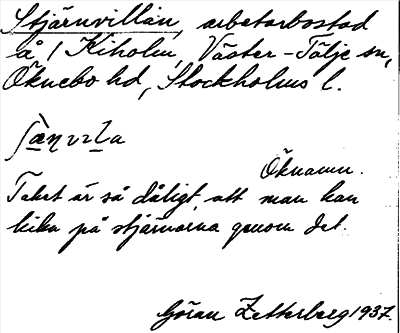 Stjärnvillan, arbetarbostad
å / Kiholm, Väster-Tälje sn,
Öknebo hd, Stockholms l.
Öknamn.
Taket är så dåligt, att man kan
kika på stjärnorna genom det.
Göran Zetterberg 1937.